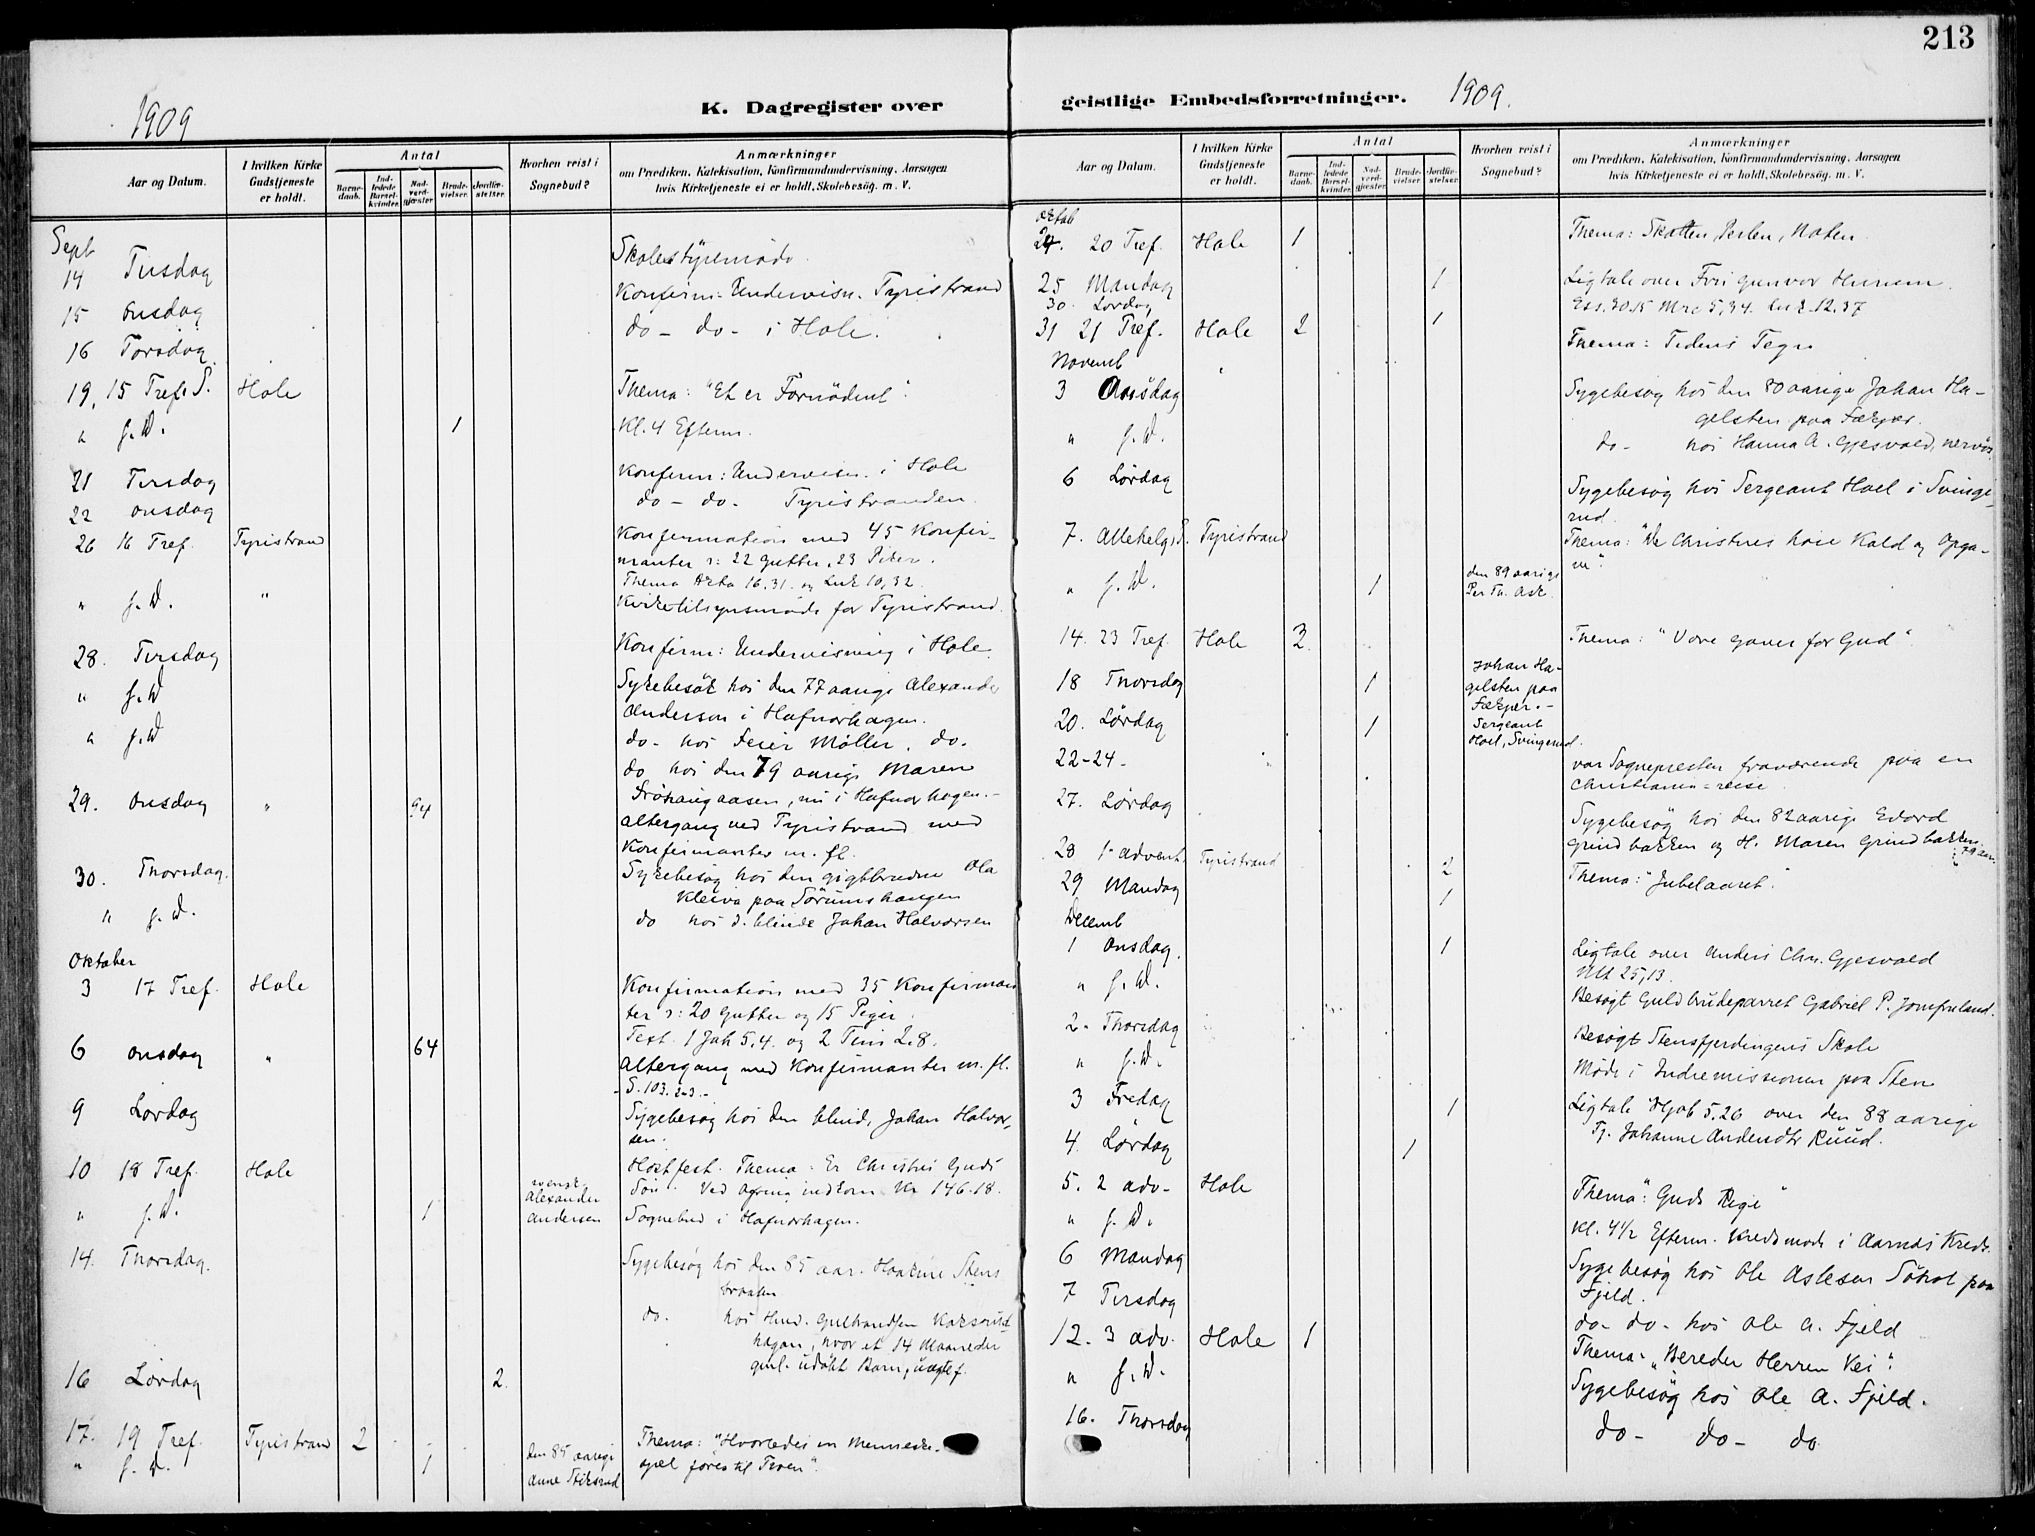 213
1909
K. Dagregister over
geistlige Embedsforretninger.
1909.
Aar og Datum.
I hvilken Kirke Gudstjeneste er holdt.
Antal
Barne-daab.
Ind-ledede Barsel-kvinder.
Nad-verd-gjæster.
Brude-vielser.
Jordfæ-stelser.
Hvorhen reist i Sognebud?
Anmærkninger
om Prædiken, Katekisation, Konfirmandundervisning, Aarsagen
hvis Kirketjeneste ei er holdt, Skolebesøg. m. V.
Sept
14 Tirsdag Skolestyremøde.
15 Onsdag Konfirm: Undervisn. Tyristrand
16 Torsdag do - do - i Hole.
19, 15 Tref. S. Hole Thema: "Et er Fornødent".
" s. D. 1 Kl. 4 Efterm.
21 Tirsdag Konfirm: Undervisn. i Hole
22 Onsdag do - do - Tyristranden.
26 16 Tref. Tyristrand Konfirmation med 45 Konfir-
manter ɔ: 22 Gutter, 23 Piker.
Thema Akta 16.31. og Luk 10,32.
" s. D. " Kirketilsynsmøde for Tyristrand.
28. Tirsdag Konfirm: Undervisning i Hole.
" s. D Sykebesøk hos den 77 aarige Alexander
Anderson i Hafnorhagen.
" s. D do - hos Feier Møller, do.
do hos den 79 aarige Maren
Frøhaugaasen, nu i Hafnorhagen.-
29. Onsdag " 94 Altergang ved Tyristrand med
Konfirmanter m. fl.
30. Thorsdag. Sykebesøg hos den gigtbrudne Ola
Kleiva paa Sørumshaugen
" s. D. do hos d. blinde Johan Halvorsen
Oktober
3 17 Tref. Hole Konfirmation med 35 Konfirman
ter ɔ: 20 Gutter og 15 Piger.
Text. 1 Joh 5.4. og 2 Tim 2.8.
6 Onsdag " 64 Altergang med Konfirmanter m. fl.
S. 103. 2-3.-
9 Lørdag Sygebesøg hos den blind, Johan Halvor,
sen.
10 18 Tref. Hole Høstfest. Thema: Er Christus Guds
Søn. Ved Ofring indkom Kr 146.18.
" s. D. 1 svensk. Alexander Andersen Sognebud i Hafnorhagen.
14. Thorsdag. Sygebesøg hos den 85 aar. Haakine Stens
braaten
do. hos Hmd. Gulbrandsen
hagan, hvor et 14 Maaneder
gml. udøbt Barn,
16 Lørdag 2.
17. 19 Tref. Tyristrand 2 Thema: "Hvorledes en Menneske-
sjæl føres til Troen".
" s. D. 1 den 85 aarige Anne Stiksrud
Oktob
24. 20 Tref. Hole 1 Thema: Skatten, Perlen, Noten.
25 Mandag 1 Ligtale over Fru Gunvor Hurum.
30. Lørdag 1 Ess. 30.15 Mrc 5,34. Luk. 12.37
31 21 Tref. Hole 2 Thema: Tidens Tegn
Novemb
3 Onsdag Sygebesøg hos den 80 aarige Johan Ha-
gelsten paa Fekjær.
" s. D. do - hos Hanna A. Gjesvold, nervøs.
6 Lørdag Sygebesøg hos Sergeant Hoel i Svinge-
rud.
7. Allehelg. S. Tyristrand Thema: "De Christnes høie Kald og Opga-
ve".
" s. D. 1 den 89 aarige Per Th. Ask.
14. 23 Tref. Hole 3. Thema: "Vore Gaver for Gud".
18 Thorsdag 1 Johan Ha-gelsten paa Fekjær.-
20. Lørdag 1 Sergeant Hoel, Svingerud.
22-24- var Sognepresten fraværende paa en
Christiania-reise.
27. Lørdag Sygebesøg hos den 82 aarige Edvard
Grindbakken og H. Maren Grindbakken, 79 aar.
28 1- Advent. Tyristrand 2 Thema: "Jubelaaret".
29 Mandag 1
Decemb
1 Onsdag. 1 Ligtale over Anders Chr. Gjesvold
Mt 25,13.
" s. D. Besøgt Guldbrudeparret Gabriel P. Jomfruland.
2. Thorsdag Besøgt Stensfjerdingens Skole
" s. D. Møde i Indremissionen paa Sten
3 Fredag 1 Ligtale Hjob 5.26 over den 88 aarige
Tj. Johanne Andersdtr Ruud.
4. Lørdag 1
5. 2 adv- Hole Thema: "Guds Rige"
" s. D. Kl. 4½ Efterm. Kredsmøde i Aarnæs Kreds.
6 Mandag Sygebesøg hos Ole Aslesen Søhol paa
Fjeld.
7 Tirsdag do - do - hos Ole A. Fjeld
12. 3 adv. Hole 1 Thema: "Bereder Herren Vei".
" s. D. Sygebesøg hos Ole A. Fjeld.
16. Thorsdag do - do - do